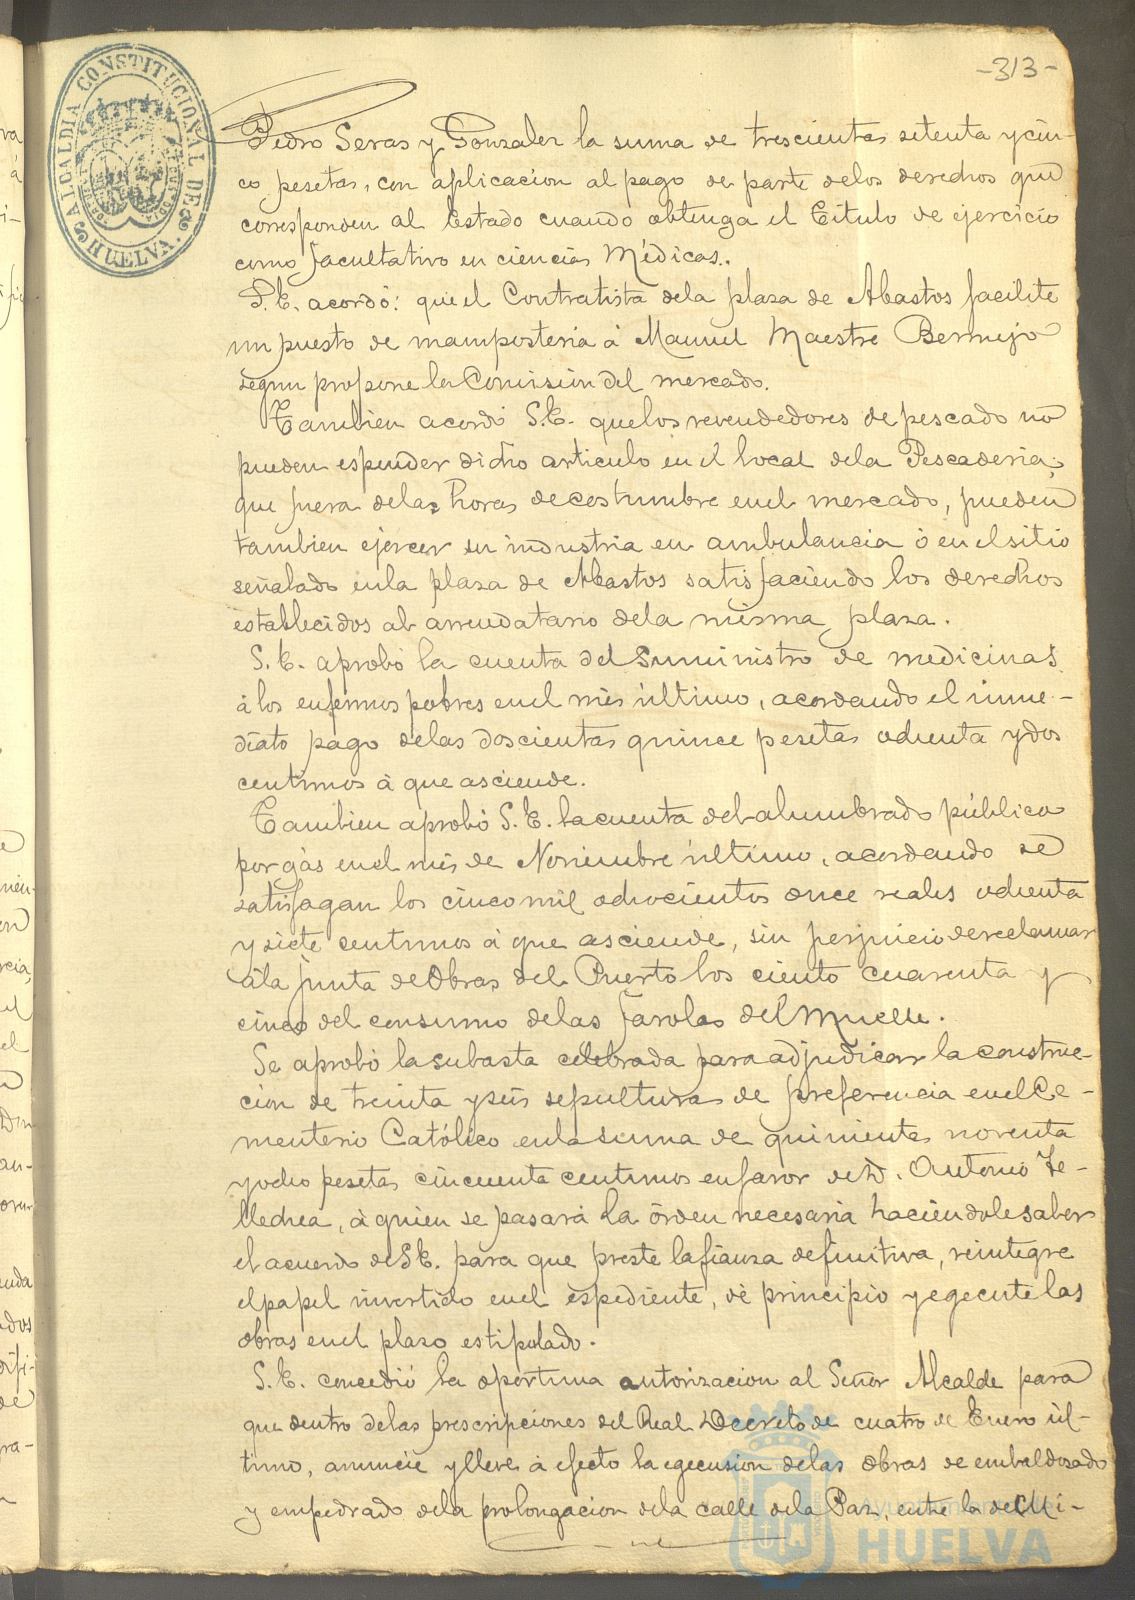 -313-
ALCALDIA CONSTITUCIONAL DE HUELVA.
Pedro Seras y Gonzalez la suma de trescientas setenta y cin-
co pesetas, con aplicacion al pago de parte delos derechos que
corresponden al Estado cuando obtenga el Titulo de ejercicio
como facultativo en ciencias Médicas.
S.E. acordó: que el Contratista dela plaza de Abastos facilite
un puesto de mamposteria á Manuel Maestre Bermejo
segun propone la Comision del mercado.
Tambien acordó S.E. quelos revendedores de pescado no
pueden espender dicho articulo en el local dela Pescaderia;
que fuera delas horas decostumbre enel mercado, pueden
tambien ejercer su industria en ambulancia ó en el sitio
señalado enla plaza de Abastos satisfaciendo los derechos
establecidos al arrendatario dela misma plaza.
S.E. aprobó la cuenta del suministro de medicinas
á los enfermos pobres enel mes último, acordando el inme-
diato pago delas doscientas quince pesetas ochenta y dos
centimos á que asciende.
Tambien aprobó S.E. la cuenta del alumbrado público
por gas en el mes de Noviembre último, acordando se
satisfagan los cinco mil ochocientos once reales ochenta
y siete centimos á que asciende, sin perjuicio de reclamar
ála Junta de Obras del Puerto los ciento cuarenta y
cinco del consumo delas farolas del Muelle.
Se aprobó la subasta celebrada para adjudicar la construc-
cion de treinta y seis sepulturas de preferencia enel Ce-
menterio Católico enla suma de quinientas noventa
y ocho pesetas cincuenta centimos en favor de D. Antonio Te-
llechea, á quien se pasará la órden necesaria haciéndole saber
el acuerdo de S.E. para que preste la fianza definitiva, reintegre
el papel invertido en el espediente, dé principio y egecute las
obras enel plazo estipulado.
S.E. concedió la oportuna autorizacion al Señor Alcalde para
que dentro delas prescripciones del Real Decreto de cuatro de Enero úl-
timo, anuncie y lleve á efecto la egecusion delas obras de embaldosado
y empedrado dela prolongacion dela calle dela Paz, entre la de Mi-
Ayuntamiento de
HUELVA